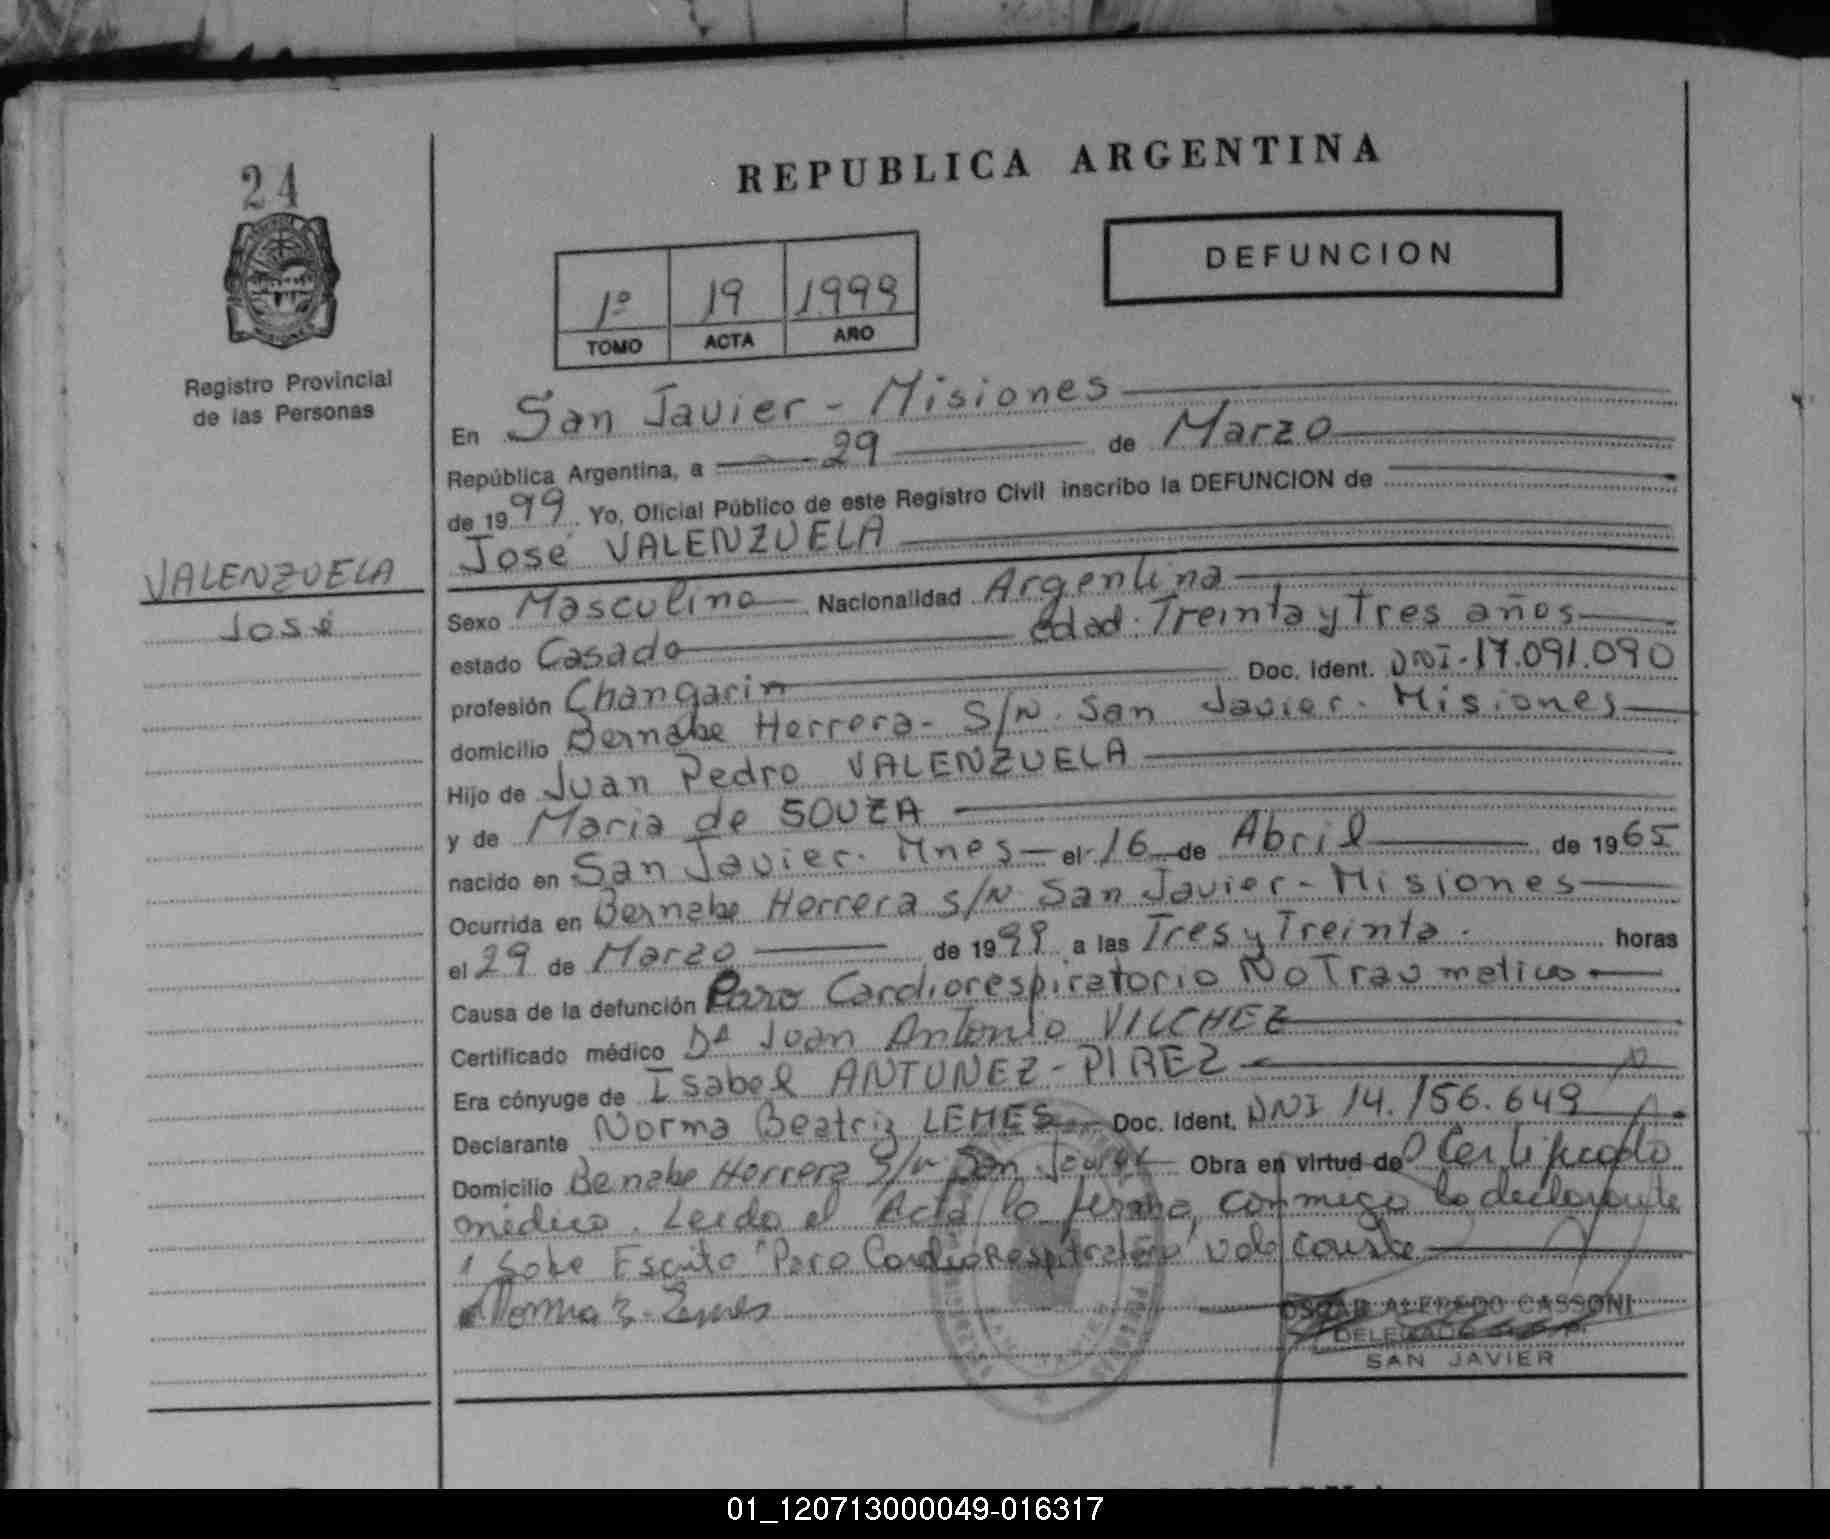 24
REPUBLICA ARGENTINA
DEFUNCION
1º 19 1999
TOMO ACTA AÑO
Registro Provincial
de las Personas
VALENZUELA
José
En San Javier - Misiones
República Argentina, a 29 de Marzo
de 1999. Yo, Oficial Público de este Registro Civil inscribo la DEFUNCION de
José VALENZUELA
Sexo Masculino Nacionalidad Argentina
estado Casado edad: Treinta y Tres años
profesión Changarin Doc. Ident. DNI-17.091.090
domicilio Bernabe Herrera - S/N. San Javier. Misiones
Hijo de Juan Pedro VALENZUELA
y de Maria de SOUZA
nacido en San Javier. Mnes el 16 de Abril de 1965
Ocurrida en Bernabe Herrera s/N San Javier - Misiones
el 29 de Marzo de 1999 a las Tres y Treinta. horas
Causa de la defunción Paro Cardiorespiratorio No Traumatico
Certificado médico Dr Juan Antonio VILCHEZ
Era cónyuge de Isabel ANTUNEZ - PIREZ
Declarante Norma Beatriz LEMES Doc. Ident. DNI 14.156.649
Domicilio Benabe Herrera S/N San Javier Obra en virtud de Certificado
médico. Leido el Acta la firma, conmigo la declarante
Sobre Escrito "Paro Cardiorespiratorio" vale conste
Norma B. Lemes
OSCAR ALFREDO CASSONI
DELEGADO
SAN JAVIER
01_120713000049-016317